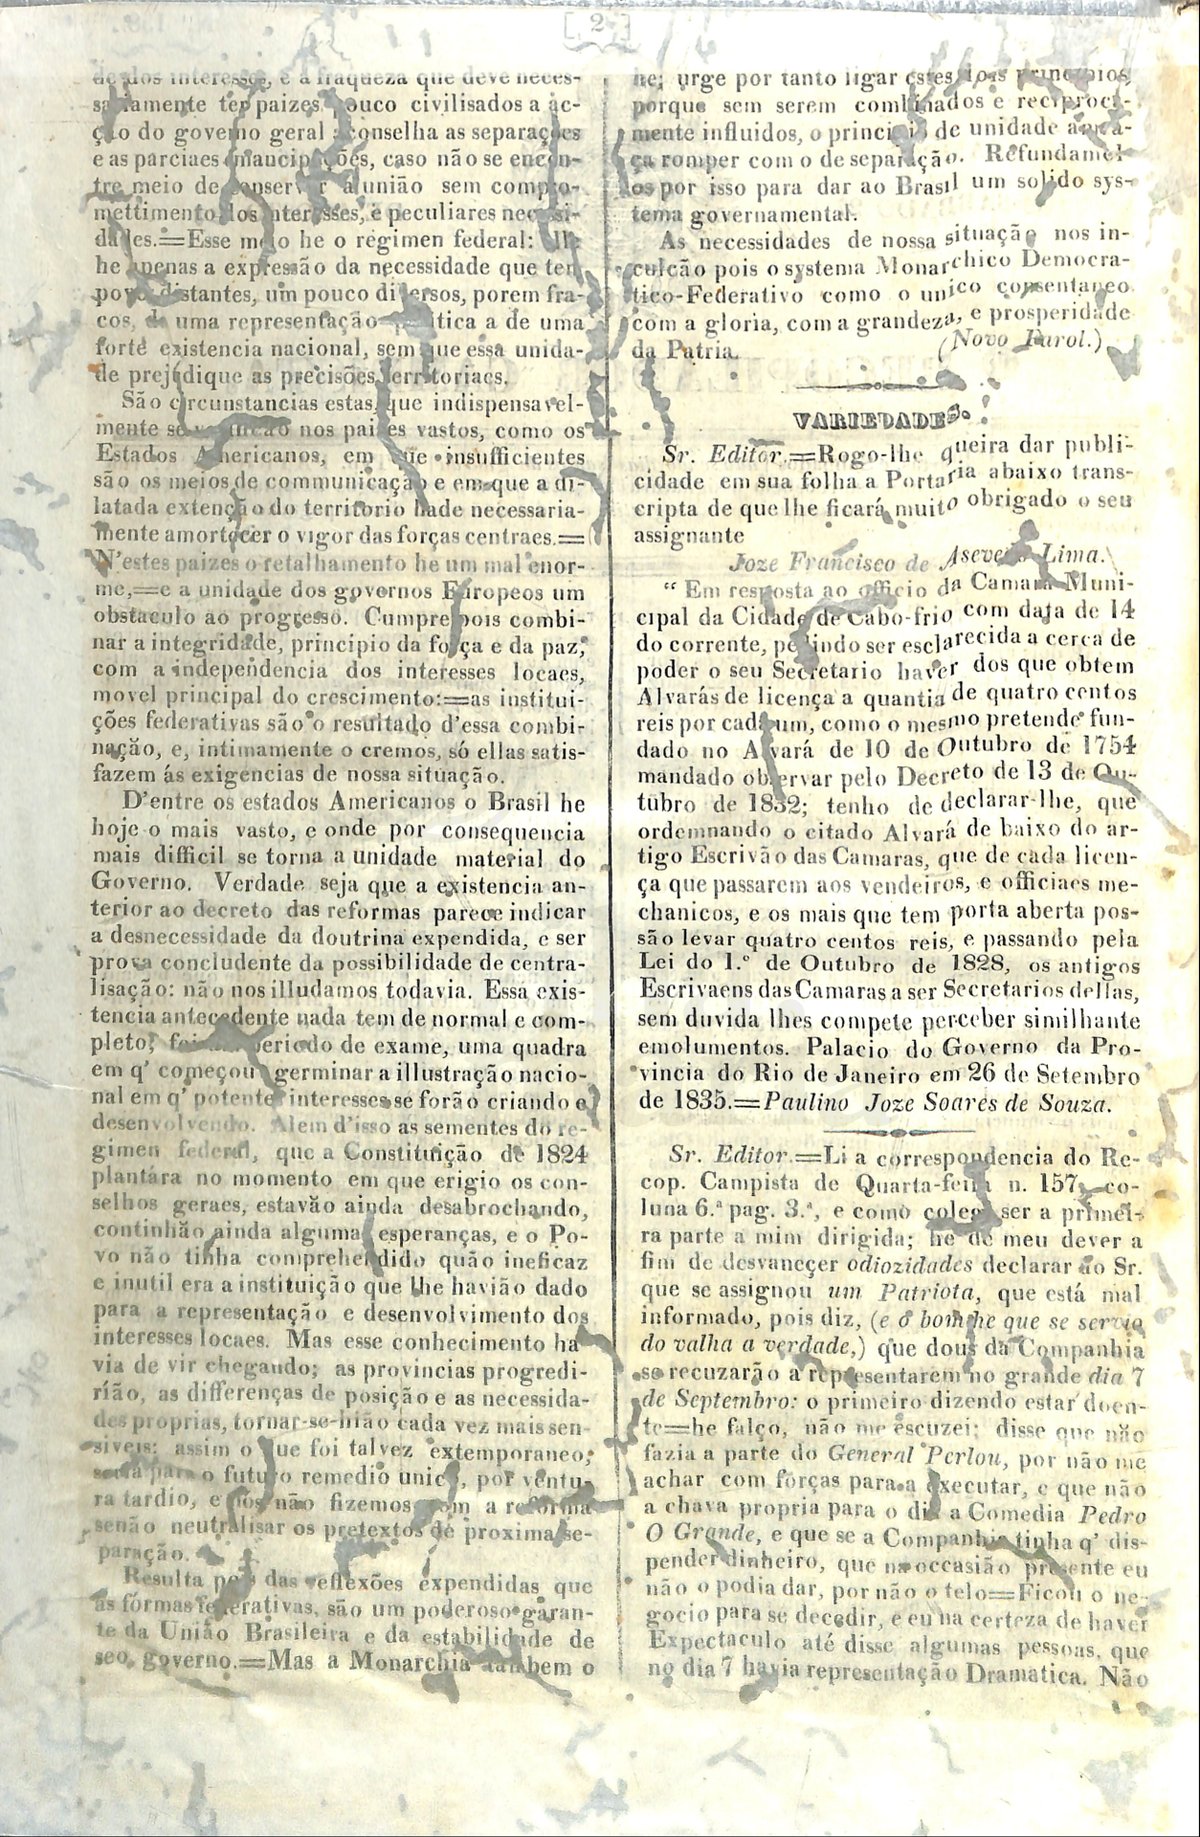 [ 2 ]
de dos interesses, e a fraqueza que deve neces-
sariamente ter paizes pouco civilisados a ac-
ção do governo geral aconselha as separações
e as parciaes emancipações, caso não se encon-
tre meio de conservar a união sem compro-
mettimento dos interesses, e peculiares necessi-
dades.=Esse meio he o regimen federal: elle
he apenas a expressão da necessidade que tem
povos distantes, um pouco diversos, porem fra-
cos, de uma representação politica a de uma
forte existencia nacional, sem que essa unida-
de prejudique as precisões territoriaes.
São circunstancias estas, que indispensavel-
mente se nos paizes vastos, como os
Estados Americanos, em que insufficientes
são os meios de communicação e em que a di-
latada extenção do territorio hade necessaria-
mente amortecer o vigor das forças centraes.=
N'estes paizes o retalhamento he um mal enor-
me,=e a unidade dos governos Europeos um
obstaculo ao progresso. Cumpre pois combi-
nar a integridade, principio da força e da paz,
com a independencia dos interesses locaes,
movel principal do crescimento:=as institui-
ções federativas são o resultado d'essa combi-
nação, e, intimamente o cremos, só ellas satis-
fazem ás exigencias de nossa situação.
D'entre os estados Americanos o Brasil he
hoje o mais vasto, e onde por consequencia
mais difficil se torna a unidade material do
Governo. Verdade seja que a existencia an-
terior ao decreto das reformas parece indicar
a desnecessidade da doutrina expendida, e ser
prova concludente da possibilidade de centra-
lisação: não nos illudamos todavia. Essa exis-
tencia antecedente nada tem de normal e com-
pleto, foi um periodo de exame, uma quadra
em q' começou germinar a illustração nacio-
nal em q' potentes interesses se forão criando e
desenvolvendo. Alem d'isso as sementes do re-
gimen federal, que a Constituição de 1824
plantára no momento em que erigio os con-
selhos geraes, estavão ainda desabrochando,
continhão ainda alguma esperanças, e o Po-
vo não tinha comprehendido quão ineficaz
e inutil era a instituição que lhe havião dado
para a representação e desenvolvimento dos
interesses locaes. Mas esse conhecimento ha
via de vir chegando; as provincias progredi-
rião, as differenças de posição e as necessida-
des proprias, tornar-se-hião cada vez mais sen-
siveis: assim o que foi talvez extemporaneo,
seria para o futuro remedio unico, por ventu-
ra tardio, e nós não fizemos com a reforma
senão neutralisar os pretextos de proxima se-
paração.
Resulta pois das reflexões expendidas que
as fórmas federativas, são um poderoso garan-
te da União Brasileira e da estabilidade de
seo governo.=Mas a Monarchia tambem o
he; urge por tanto ligar estes dois principios,
porque sem serem combinados e reciproca-
mente influidos, o principio de unidade amea-
ça romper com o de separação. Refundamol-
os por isso para dar ao Brasil um solido sys-
tema governamental.
As necessidades de nossa situação nos in-
culcão pois o systema Monarchico Democra-
tico-Federativo como o unico consentaneo
com a gloria, com a grandeza, e prosperidade
da Patria. (Novo Farol.)
VARIEDADES.
Sr. Editor.=Rogo-lhe queira dar publi-
cidade em sua folha a Portaria abaixo trans-
cripta de que lhe ficará muito obrigado o seu
assignante
Joze Francisco de Asevedo Lima.
“ Em resposta ao officio da Camara Muni-
cipal da Cidade de Cabo-frio com data de 14
do corrente, pedindo ser esclarecida a cerca de
poder o seu Secretario haver dos que obtem
Alvarás de licença a quantia de quatro centos
reis por cada um, como o mesmo pretende fun-
dado no Alvará de 10 de Outubro de 1754
mandado observar pelo Decreto de 13 de Ou-
tubro de 1832; tenho de declarar-lhe, que
ordemnando o citado Alvará de baixo do ar-
tigo Escrivão das Camaras, que de cada licen-
ça que passarem aos vendeiros, e officiaes me-
chanicos, e os mais que tem porta aberta pos-
são levar quatro centos reis, e passando pela
Lei do 1.º de Outubro de 1828, os antigos
Escrivaens das Camaras a ser Secretarios dellas,
sem duvida lhes compete perceber similhante
emolumentos. Palacio do Governo da Pro-
vincia do Rio de Janeiro em 26 de Setembro
de 1835.=Paulino Joze Soares de Souza.
Sr. Editor.=Li a correspondencia do Re-
cop. Campista de Quarta-feira n. 157, co-
luna 6.ª pag. 3.ª, e como colegi ser a primei-
ra parte a mim dirigida; he de meu dever a
fim de desvanecer odiozidades declarar ao Sr.
que se assignou um Patriota, que está mal
informado, pois diz, (e o bom he que se servio
do valha a verdade,) que dous da Companhia
se recuzarão a representarem no grande dia 7
de Septembro: o primeiro dizendo estar doen-
te=he falço, não me escuzei; disse que não
fazia a parte do General Perlou, por não me
achar com forças para a executar, e que não
a chava propria para o dia a Comedia Pedro
O Grande, e que se a Companhia tinha q' dis-
pender dinheiro, que na occasião presente eu
não o podia dar, por não o telo=Ficou o ne-
gocio para se decedir, e eu na certeza de haver
Expectaculo até disse algumas pessoas, que
no dia 7 havia representação Dramatica. Não